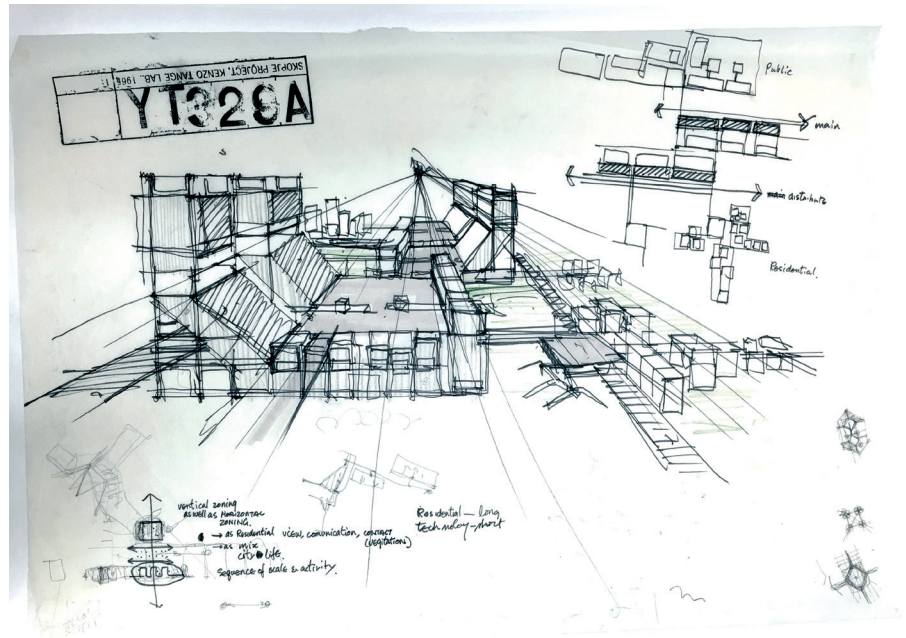 SKOPJE PROJECT. KENZO TANGE LAB., 196
YT329A
Public
main
main distribute
Residential.
vertical zoning
as well as HORIZONTAL
ZONING.
→ as Residential view, comunication, contact
(vegitation)
→ as mix
city life.
sequence of scale & activity.
Residential — long
technology — short